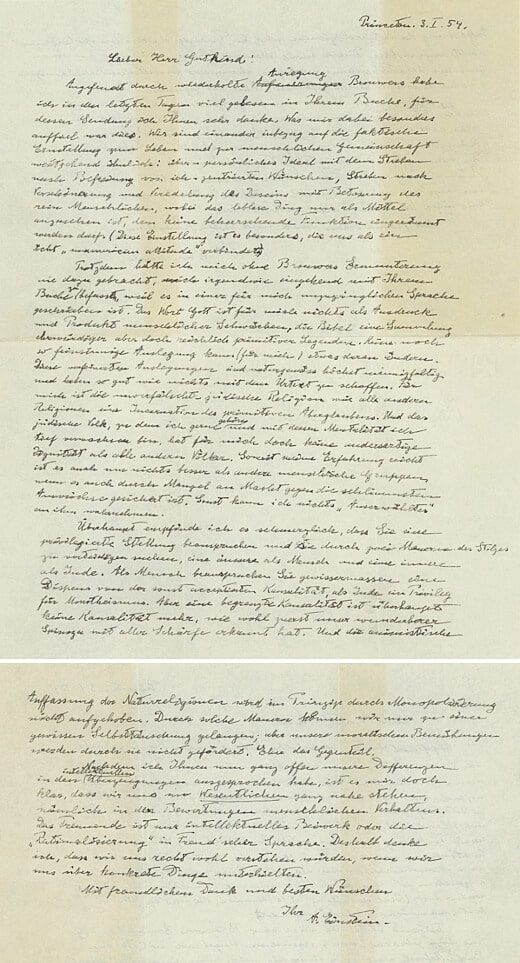 Princeton. 3. I. 54.
Lieber Herr Gutkind!
Angefeuert durch wiederholte Anregung Brouwers habe
ich in den letzten Tagen viel gelesen in Ihrem Buche, für
dessen Sendung ich Ihnen sehr danke. Was mir dabei besonders
auffiel war dies. Wir sind einander inbezug auf die faktische
Einstellung zum Leben und zur menschlichen Gemeinschaft
weitgehend ähnlich: über-persönliches Ideal mit dem Streben
nach Befreiung von ich-zentrierten Wünschen, Streben nach
Verschönerung und Veredelung des Daseins mit Betonung des
rein Menschlichen, wobei das leblose Ding nur als Mittel
anzusehen ist, dem keine beherrschende Funktion eingeräumt
werden darf. (Diese Einstellung ist es besonders, die uns als ein
echt „unamerican attitude" verbindet)
Trotzdem hätte ich mich ohne Brouwers Ermunterung
nie dazu gebracht, mich irgendwie eingehend mit Ihrem
Buche zu befassen, weil es in einer für mich unzugänglichen Sprache
geschrieben ist. Das Wort Gott ist für mich nichts als Ausdruck
und Produkt menschlicher Schwächen, die Bibel eine Sammlung
ehrwürdiger aber doch reichlich primitiver Legenden. Keine noch
so feinsinnige Auslegung kann (für mich) etwas daran ändern.
Diese verfeinerten Auslegungen sind naturgemäss höchst mannigfaltig
und haben so gut wie nichts mit dem Urtext zu schaffen. Für
mich ist die unverfälschte jüdische Religion wie alle anderen
Religionen eine Incarnation des primitiven Aberglaubens. Und das
jüdische Volk, zu dem ich gern gehöre und mit dessen Mentalität ich
tief verwachsen bin, hat für mich doch keine andersartige
Dignität als alle anderen Völker. Soweit meine Erfahrung reicht
ist es auch um nichts besser als andere menschliche Gruppen,
wenn es auch durch Mangel an Macht gegen die schlimmsten
Auswüchse gesichert ist. Sonst kann ich nichts „Auserwähltes"
an ihm wahrnehmen.
Überhaupt empfinde ich es schmerzlich, dass Sie eine
privilegierte Stellung beanspruchen und sie durch zwei Mauern des Stolzes
zu verteidigen suchen, eine äussere als Mensch und eine innere
als Jude. Als Mensch beanspruchen Sie gewissermassen einen
Dispens von der sonst acceptierten Kausalität, als Jude ein Privileg
für Monotheismus. Aber eine begrenzte Kausalität ist überhaupt
keine Kausalität mehr, wie wohl zuerst unser wunderbarer
Spinoza mit aller Schärfe erkannt hat. Und die animistische
Auffassung der Naturreligionen wird im Prinzip durch Monopolisierung
nicht aufgehoben. Durch solche Mauern können wir nur zu einer
gewissen Selbsttäuschung gelangen; aber unsere moralischen Bemühungen
werden durch sie nicht gefördert. Eher das Gegenteil.
Nachdem ich Ihnen nun ganz offen unsere Differenzen
in den intellektuellen Überzeugungen ausgesprochen habe, ist es mir doch
klar, dass wir uns im Wesentlichen ganz nahe stehen,
nämlich in den Bewertungen menschlichen Verhaltens.
Das Trennende ist nur intellektuelles Beiwerk oder die
„Rationalisierung" in Freud'scher Sprache. Deshalb denke
ich, dass wir uns recht wohl verstehen würden, wenn wir
uns über konkrete Dinge unterhielten.
Mit freundlichem Dank und besten Wünschen
Ihr
A. Einstein.